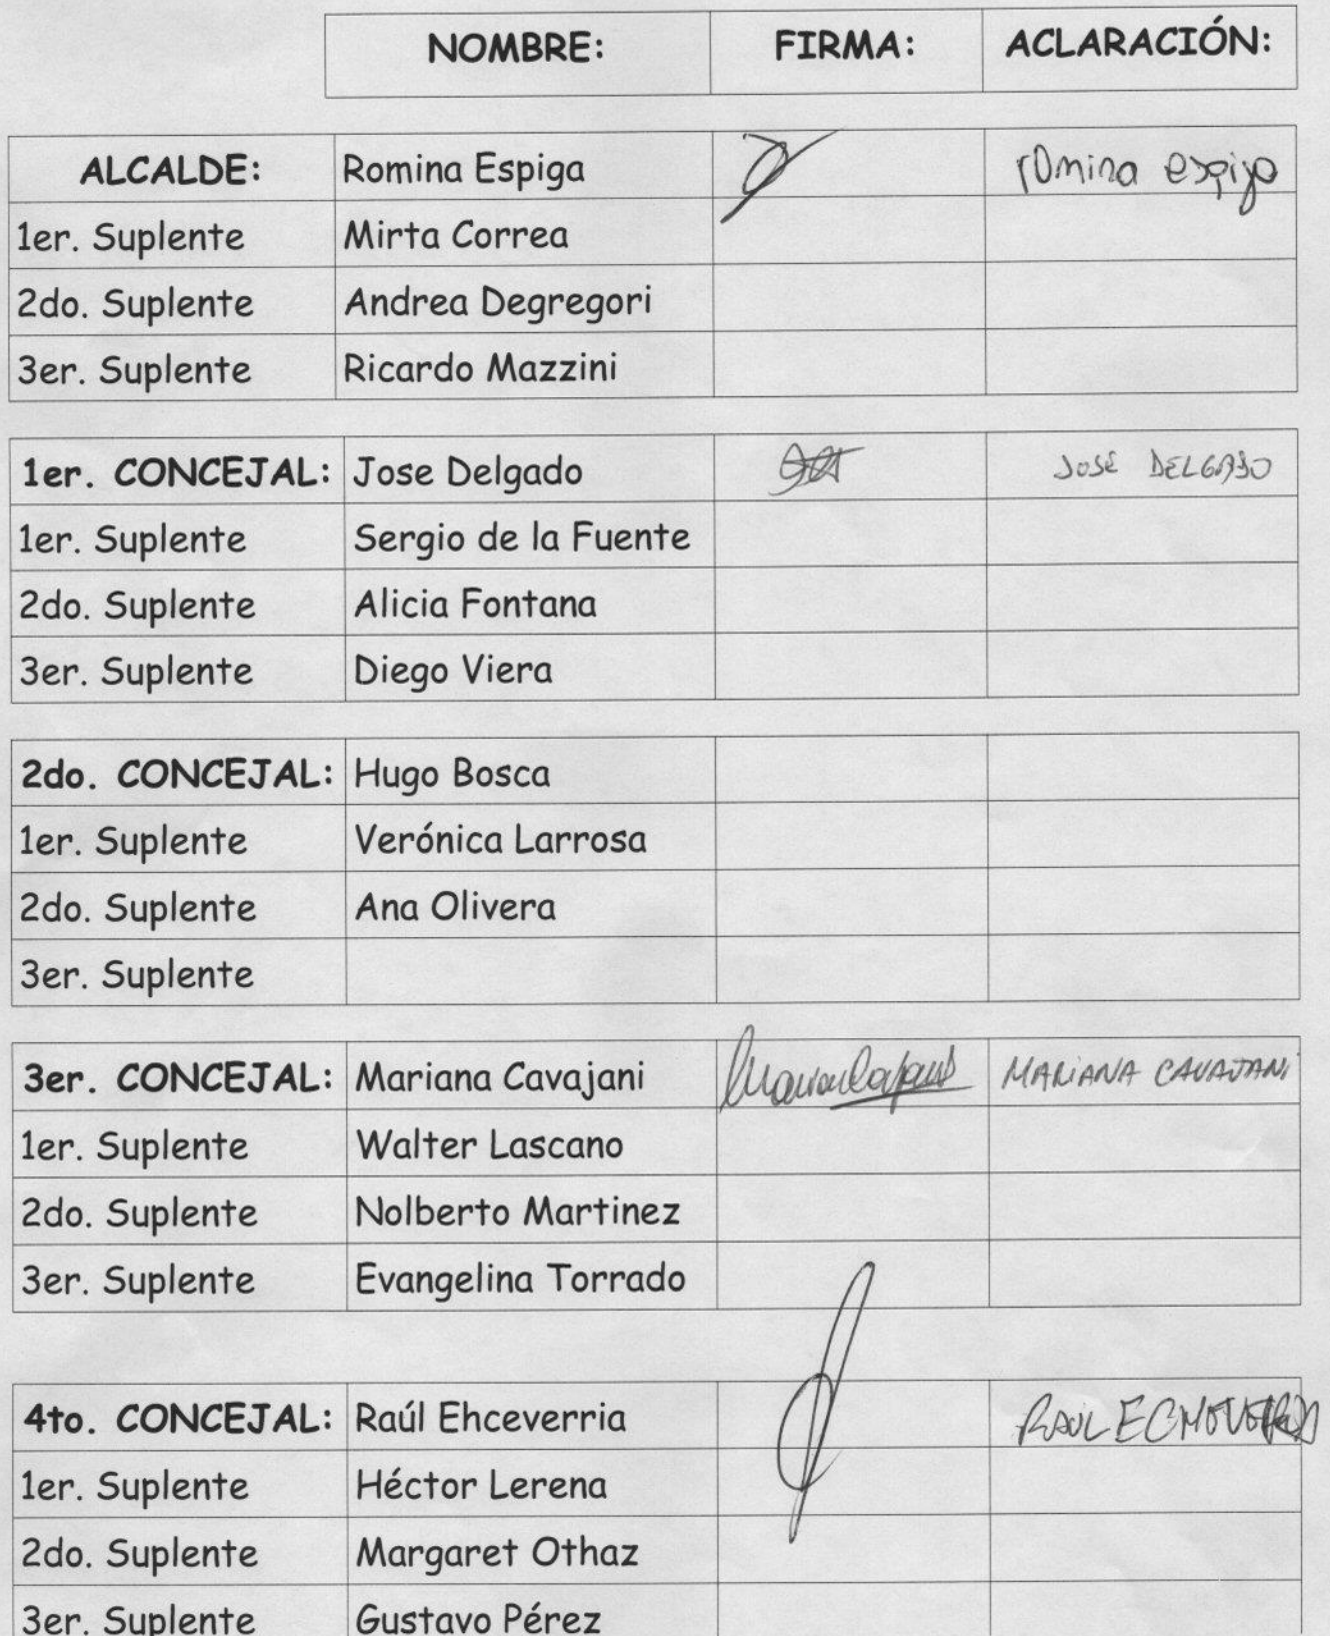 NOMBRE: FIRMA: ACLARACIÓN:
ALCALDE: Romina Espiga romina espiga
1er. Suplente Mirta Correa
2do. Suplente Andrea Degregori
3er. Suplente Ricardo Mazzini
1er. CONCEJAL: Jose Delgado JOSÉ DELGADO
1er. Suplente Sergio de la Fuente
2do. Suplente Alicia Fontana
3er. Suplente Diego Viera
2do. CONCEJAL: Hugo Bosca
1er. Suplente Verónica Larrosa
2do. Suplente Ana Olivera
3er. Suplente
3er. CONCEJAL: Mariana Cavajani MARIANA CAVAJANI
1er. Suplente Walter Lascano
2do. Suplente Nolberto Martinez
3er. Suplente Evangelina Torrado
4to. CONCEJAL: Raúl Ehceverria RAUL
1er. Suplente Héctor Lerena
2do. Suplente Margaret Othaz
3er. Suplente Gustavo Pérez